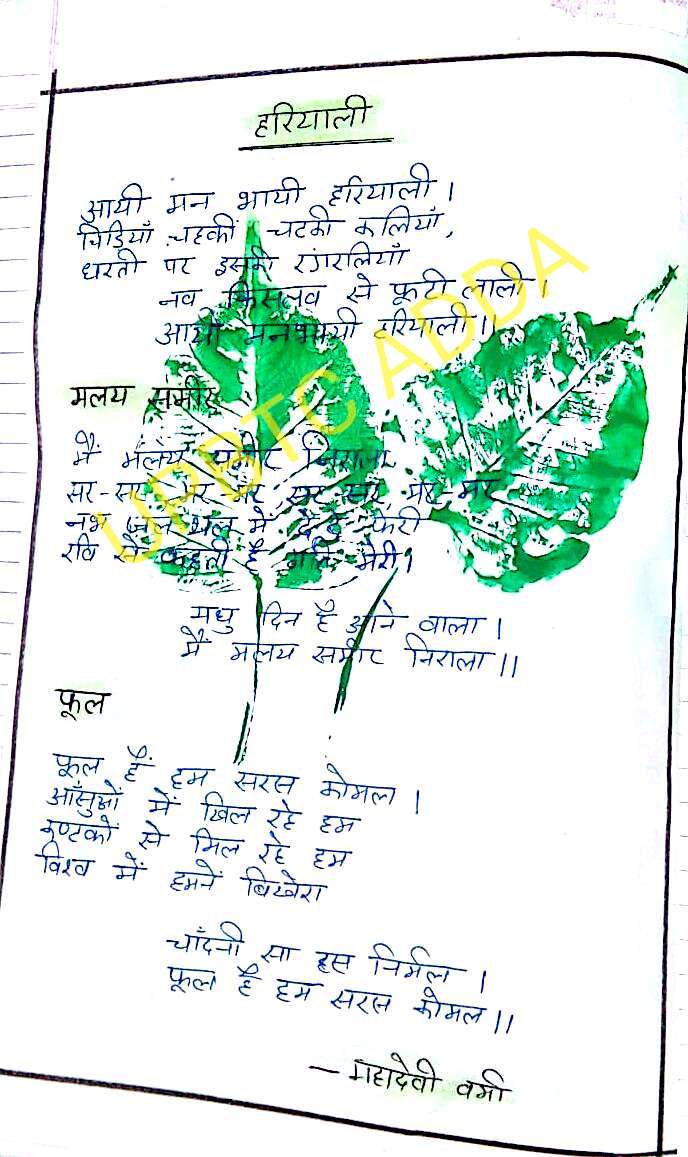 हरियाली
आयी मन भायी हरियाली।
चिड़ियाँ चहकीं चटकी कलियाँ,
धरती पर इसकी रंगरलियाँ
नव किसलव से फूटी लाली।
आयी मनभायी हरियाली।।
मलय समीर
मैं मलय समीर निराला
सर-सर मर-मर सर सर मर-मर
नभ जल थल में दे दे फेरी
रवि से कहती है गति मेरी।
मधु दिन है आने वाला।
मैं मलय समीर निराला।।
फूल
फूल हैं हम सरस कोमल।
आँसुओं में खिल रहे हम
कण्टकों से मिल रहे हम
विश्व में हमनें बिखेरा
चाँदनी सा हास निर्मल।
फूल है हम सरस कोमल।।
– महादेवी वर्मा
UPBTC ADDA